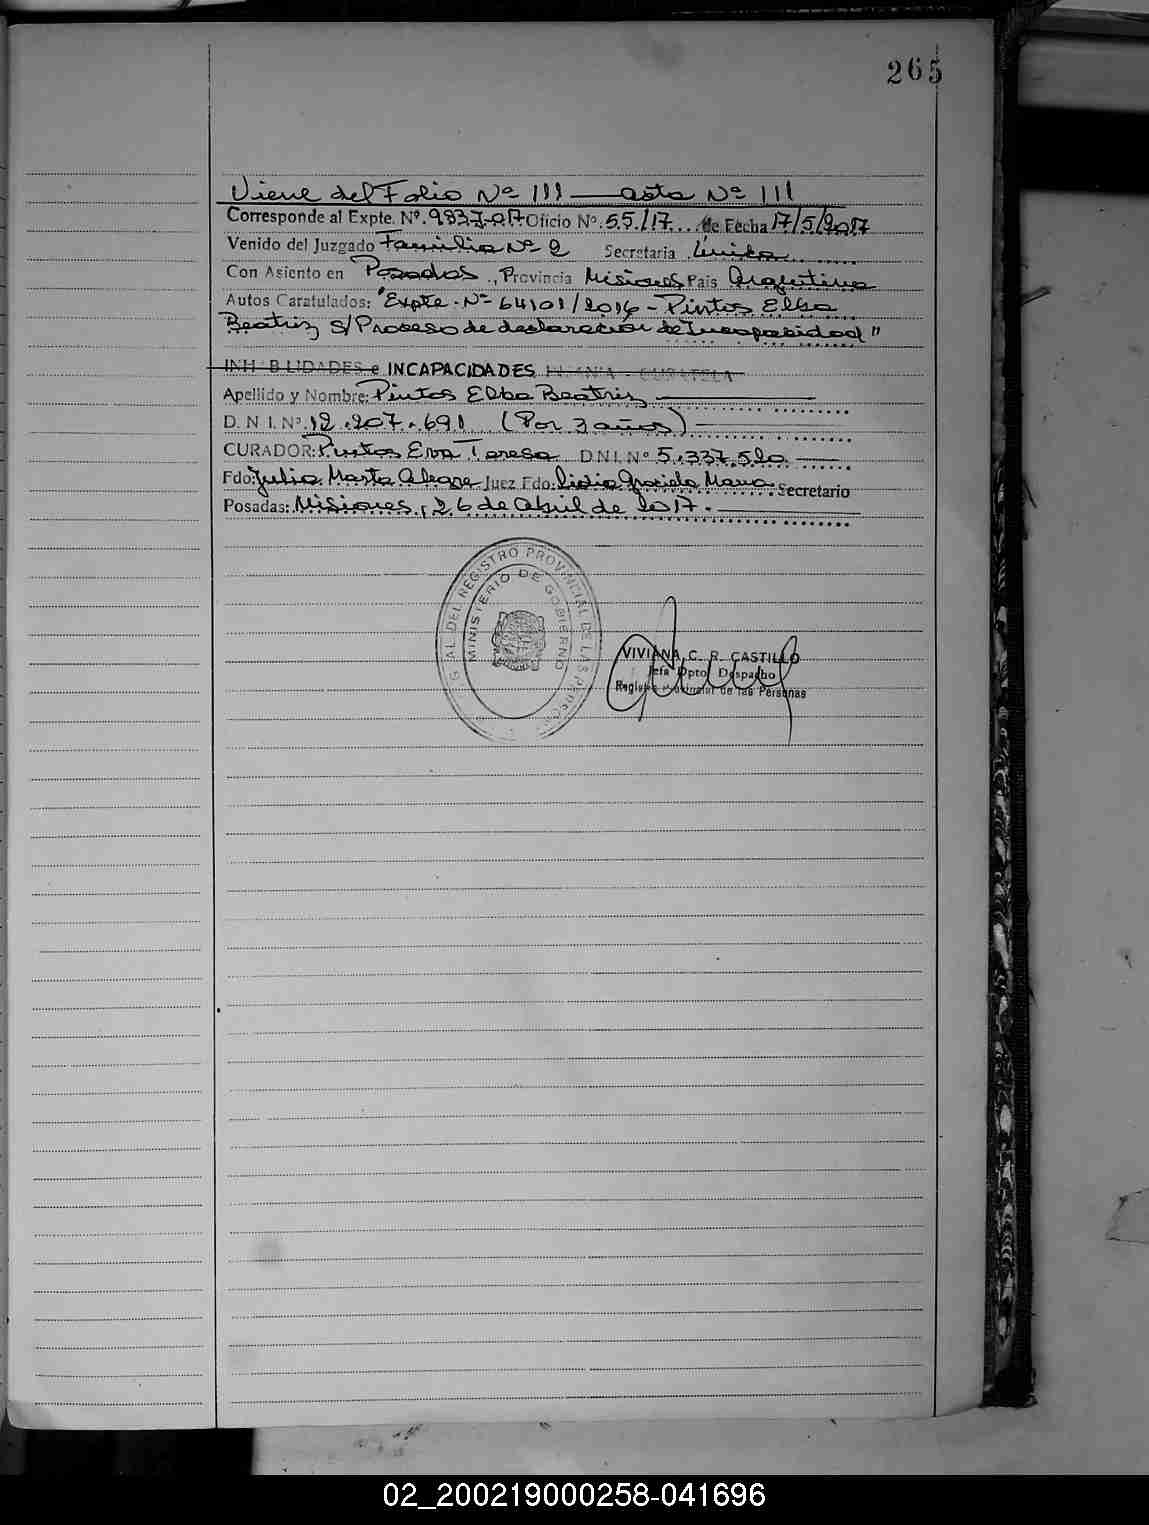 265
Viene del Folio Nº 111 — acta Nº 111
Corresponde al Expte. Nº. 9837-017 Oficio Nº. 55/17 de Fecha 17/5/2017
Venido del Juzgado Familia Nº 2 Secretaria Única
Con Asiento en Posadas, Provincia Misiones Pais Argentina
Autos Caratulados: "Expte. Nº 64101/2016 - Pintos Elba
Beatriz s/Proceso de declaración de Incapacidad"
INHABILIDADES e INCAPACIDADES INSANIA - CURATELA
Apellido y Nombre: Pintos Elba Beatriz
D. N. I. Nº. 12.207.691 (Por 3 años)
CURADOR: Pintos Eva Teresa DNI. Nº 5.337.520
Fdo: Julia Marta Alegre Juez Fdo: Lidia Graciela Secretario
Posadas: Misiones, 26 de abril de 2017.
DEL REGISTRO PROVINCIAL DE LAS PERSONAS
MINISTERIO DE GOBIERNO
VIVIANA C. R. CASTILLO
Jefa Dpto. Despacho
Registro Provincial de las Personas
02_200219000258-041696